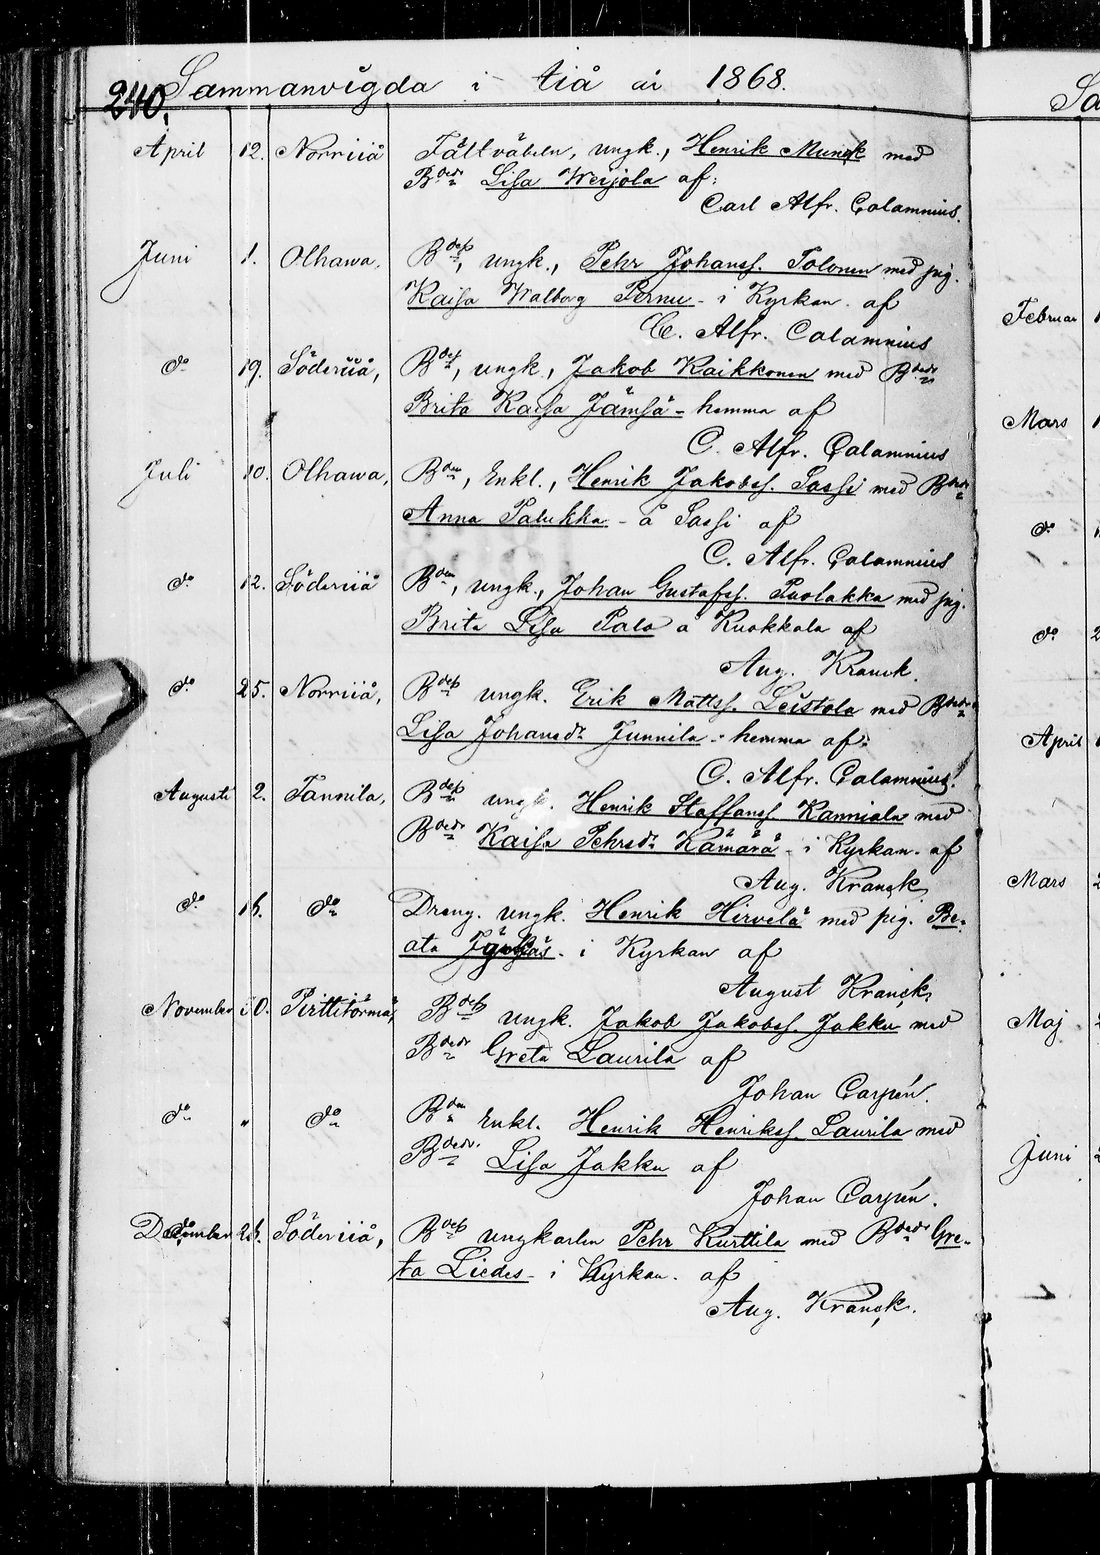 240. Sammanvigda i Iiå år 1868.
April 12. Norriiå Fältväbeln, ungk., Henrik Munck med
Bdedr Lisa Weijola af:
Carl Alfr. Calamnius.
Juni 1. Olhawa, Bdes, ungk., Pehr Johanss. Tolonen med pig.
Kaisa Walborg Pernu - i Kyrkan af
C. Alfr. Calamnius
do 19. Söderiiå, Bdes, ungk., Jakob Kaikkonen med Bdedr
Brita Kaisa Jämsä - hemma af
C. Alfr. Calamnius
Juli 10. Olhawa, Bden, Enkl., Henrik Jakobss. Sassi med Bdedr
Anna Palukka - å Sassi af
C. Alfr. Calamnius
do 12. Söderiiå Bden, ungk., Johan Gustafss. Puolakka med pig.
Brita Lisa Palo å Kuokkala af
Aug. Kranck.
do 25. Norriiå, Bdes ungk. Erik Mattss. Leistola med Bdedr
Lisa Johansdr Junnila - hemma af:
C. Alfr. Calamnius.
Augusti 2. Tannila, Bdes ungk. Henrik Staffanss. Kanniala med
Bdedr Kaisa Pehrsdr Kämärä - i Kyrkan af
Aug. Kranck
do 16. do Dreng. ungk. Henrik Hirvelä med pig. Be-
ata - i Kyrkan af
August Kranck
November 10. Pirttitörmä, Bdes ungk. Jakob Jakobss. Jakku med
Bdedr Greta Laurila af
Johan Carpén.
do " do Bden Enkl. Henrik Henrikss. Laurila med
Bdedr. Lisa Jakku af
Johan Carpén.
December 26. Söderiiå, Bdes ungkarlen Pehr Kurttila med Bdedr Gre-
ta Liedes - i Kyrkan af
Aug. Kranck.
Sa
Februar 1
Mars 1
do 1
do 2
April
Mars 2
Maj 2
Juni 2